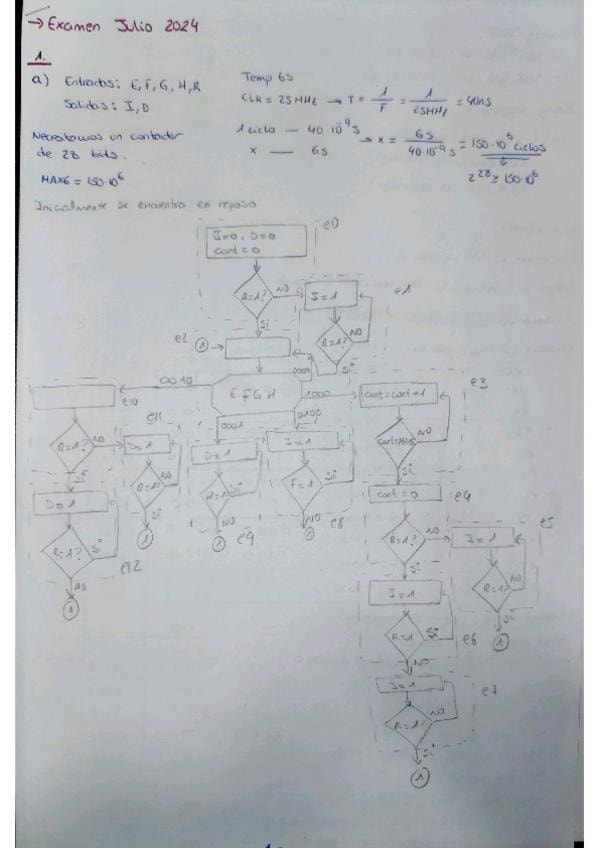 →Examen Julio 2024
1.
a) Entradas: E, F, G, H, R
Salidas: I, D
Necesitamos un contador
de 28 bits.
MAX6 = 150·10⁶
Temp 6s
CLK = 25MHz → T = 1/F = 1/25MHz = 40ns
1 ciclo — 40·10⁻⁹s
x — 6s
→ x = 6s/40·10⁻⁹s = 150·10⁶ ciclos
2²⁸ ≥ 150·10⁶
Inicialmente se encuentra en reposo
e0
I=0, D=0
cont = 0
R=1? NO
Sí
I=1
e1
R=1? NO
Sí
e2
1
EFGH
0010
0001
0100
1000
e10
R=1? NO
Sí
e11
D=1
R=1?
Sí
1
D=1
R=1? Sí
NO
e12
1
D=1
H=1 Sí
NO
e9
1
I=1
F=1 Sí
NO
e8
1
e3
cont=cont+1
cont=MAX6 NO
Sí
cont=0
e4
R=1? NO
Sí
I=1
e5
R=1? NO
Sí
1
I=1
R=1 Sí
NO
e6
I=1
e7
R=1? NO
Sí
1